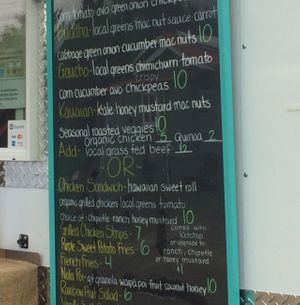 corn tomato avo green onion chickpea
Buddha - local greens mac nut sauce - carrot
cabbage green onion cucumber mac nuts 10
Gaucho - local greens chimichurri - tomato
crispy
corn cucumber avo chickpeas 10
Kauaian - Kale honey mustard mac nuts
Seasonal roasted veggies 10
Add - Organic chicken 5 Quinoa 2
local grass fed beef 6
-OR-
Chicken Sandwich - hawaiian sweet roll
organic grilled chicken local greens tomato
choice of: chipotle ranch, honey mustard 10
Grilled Chicken Strips - 7
Purple Sweet Potato Fries - 6
French Fries - 4
comes with
Ketchup
or upgrade to -
ranch, chipotle
or honey mustard
+1
gf granola poi fruit coconut honey 10
Rainbow Fruit Salad - 6